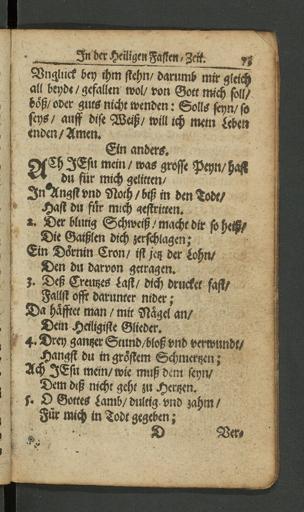 In der Heiligen Fasten/Zeit. 73
Vnglück bey ihm stehn/ darumb mir gleich
all beyde/ gefallen wol/ von Gott mich soll/
böß/ oder guts nicht wenden: Solls seyn/ so
seys/ auff dise Weiß/ will ich mein Leben
enden/ Amen.
Ein anders.
ACh JEsu mein/ was grosse Peyn/ hast
du für mich gelitten/
In Angst vnd Noth/ biß in den Todt/
Hast du für mich gestritten.
2. Der blutig Schweiß/ macht dir so heiß/
Die Gaißlen dich zerschlagen;
Ein Dörnin Cron/ ist jetz der Lohn/
Den du darvon getragen.
3. Deß Creutzes Last/ dich drucket fast/
Fallst offt darunter nider;
Da häfftet man/ mit Nägel an/
Dein Heiligiste Glieder.
4. Drey gantzer Stund/ bloß vnd verwundt/
Hangst du in gröstem Schmertzen;
Ach JEsu mein/ wie muß dem seyn/
Dem diß nicht geht zu Hertzen.
5. O Gottes Lamb/ dultig vnd zahm/
Für mich in Todt gegeben;
D Ver-